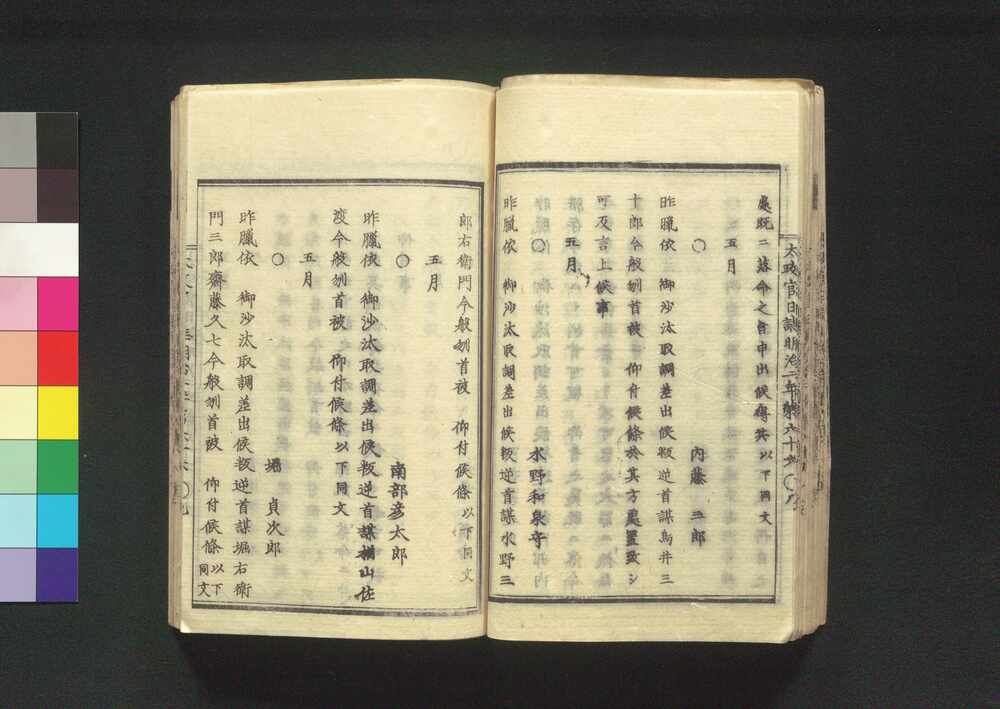 處既ニ落命之旨申出候得共以下同文
五月
○ 内藤 三郎
昨臘依 御沙汰取調差出候叛逆首謀鳥井三
十郎今般刎首被 仰付候條於其方處置致シ
可及言上候事
五月
○ 水野和泉守
昨臘依 御沙汰取調差出候叛逆首謀水野三
郎右衛門今般刎首被 仰付候條以下同文
五月
○ 南部彦太郎
昨臘依 御沙汰取調差出候叛逆首謀楢山佐
渡今般刎首被 仰付候條以下同文
五月
○ 堀 貞次郎
昨臘依 御沙汰取調差出候叛逆首謀堀右衛
門三郎齋藤久七今般刎首被 仰付候條以下同文
太政官日誌明治二年第六十